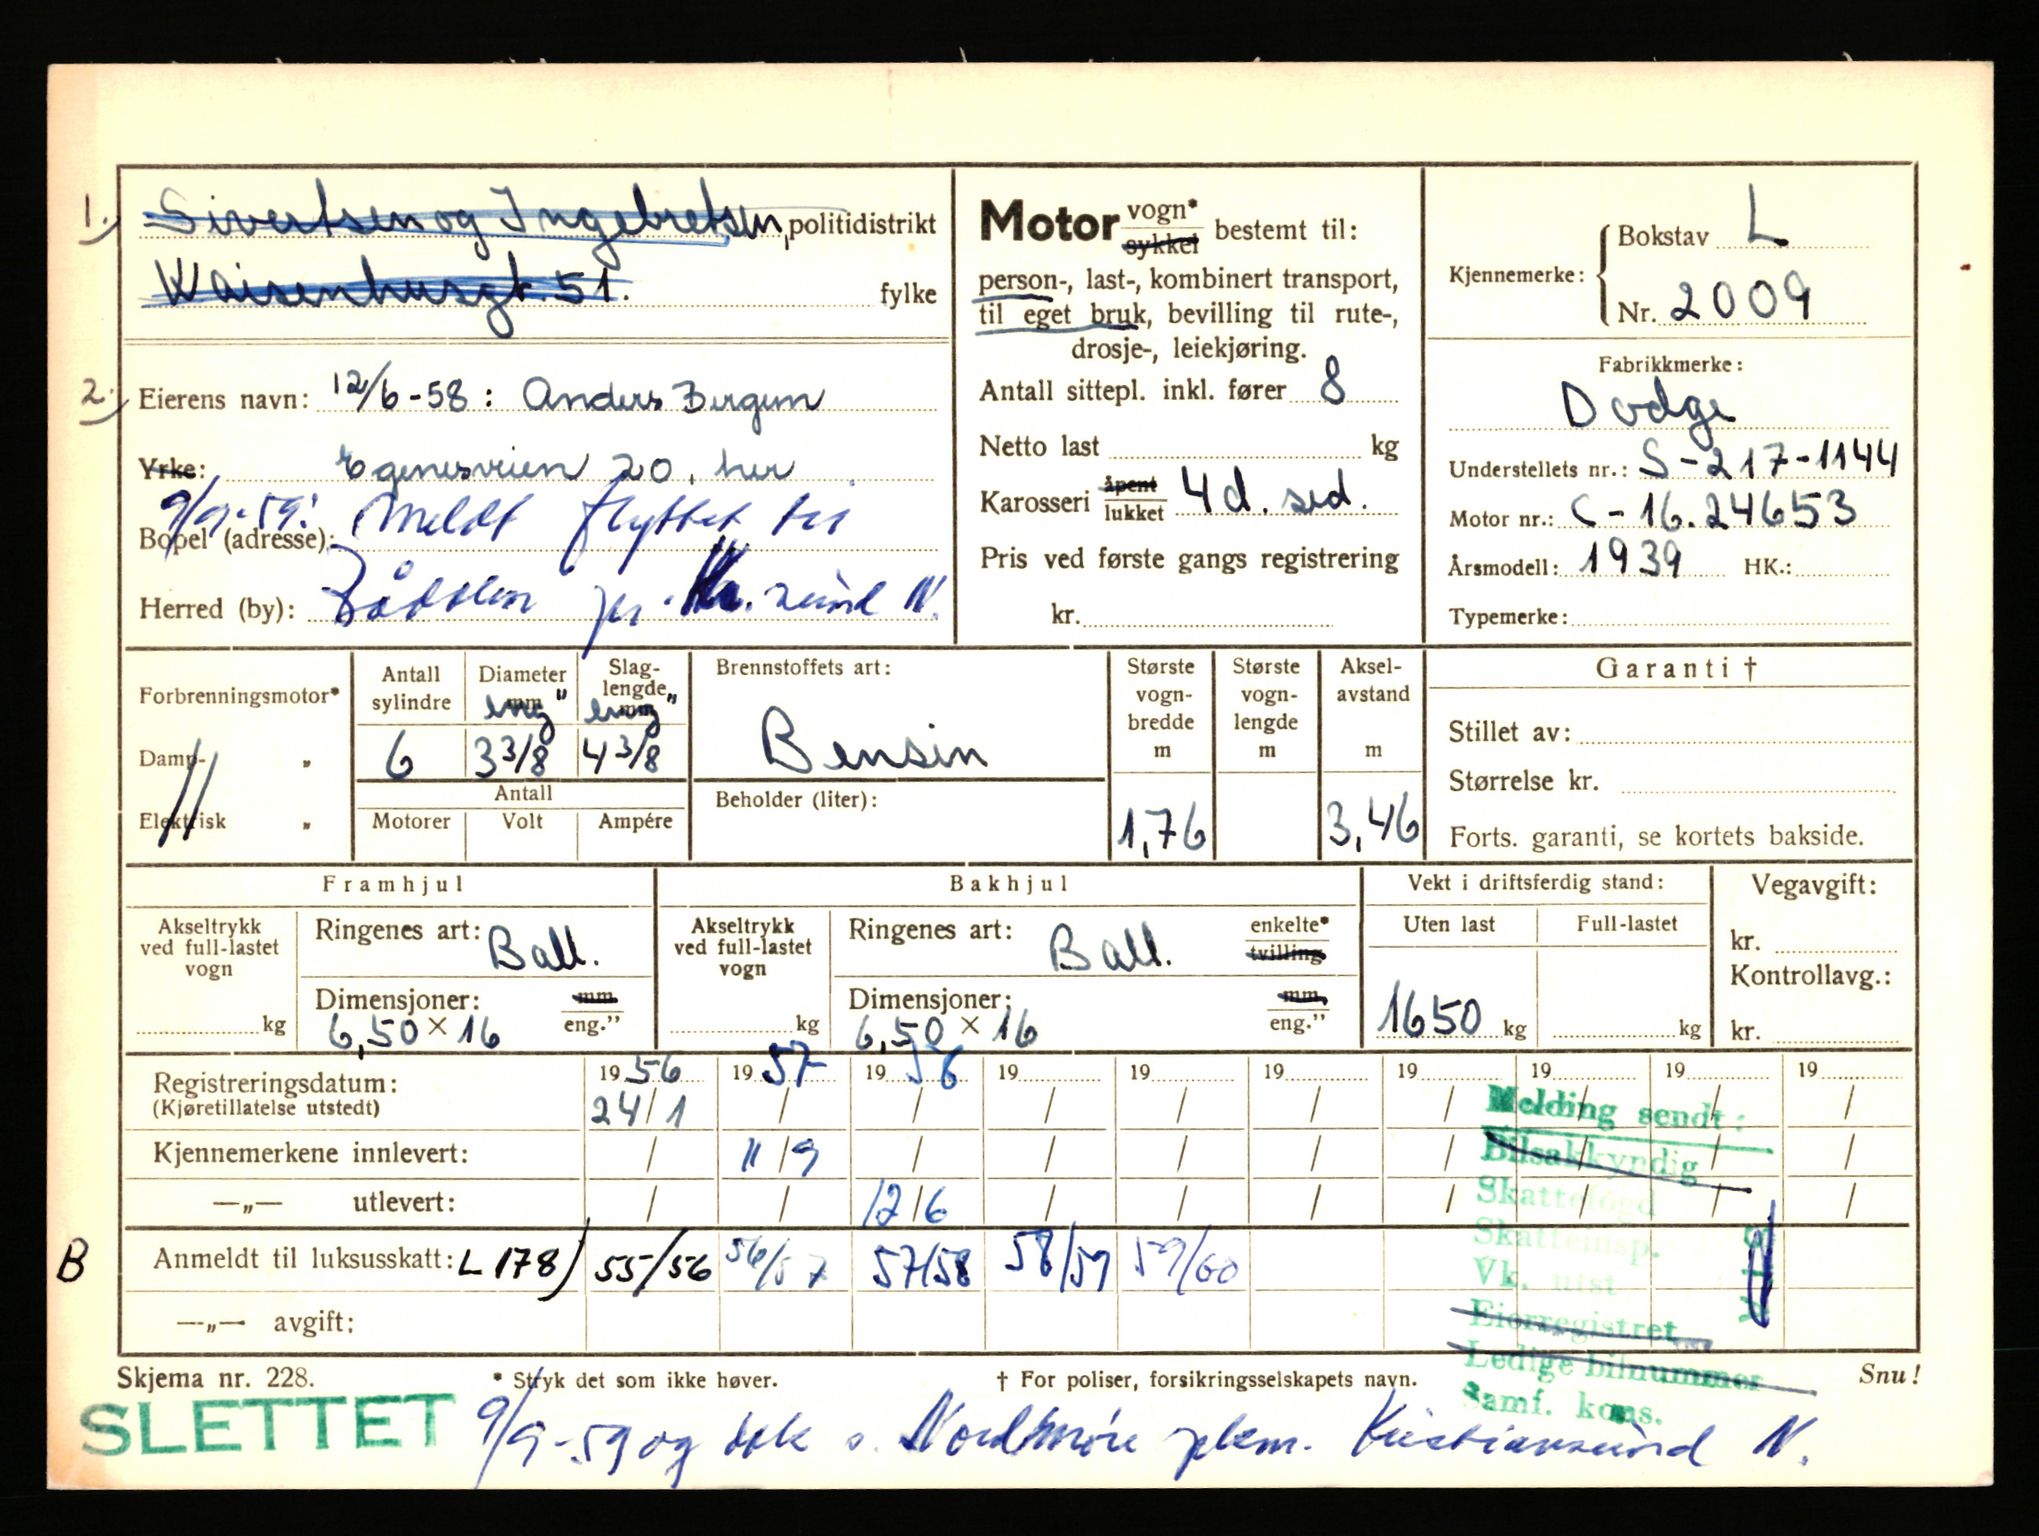 1. Sivertsen og Ingebretsen, politidistrikt
Waisenhusgt. 51. fylke
2. Eierens navn: 12/6-58: Anders Bergem
Yrke: Egenesveien 20, her
9/9-59: Meldt flyttet til
Bopel (adresse):
Herred (by): pr. Kr.sund N.
Motor vogn* sykkel bestemt til:
person-, last-, kombinert transport,
til eget bruk, bevilling til rute-,
drosje-, leiekjøring.
Antall sittepl. inkl. fører 8
Netto last kg
Karosseri åpent lukket 4d. sed.
Pris ved første gangs registrering
kr.
Kjennemerke: Bokstav L
Nr. 2009
Fabrikkmerke:
Dodge
Understellets nr.: S-217-1144
Motor nr.: C-16.24653
Årsmodell: 1939 HK.:
Typemerke:
Forbrenningsmotor*
Damp- „
Elektrisk „
Antall sylindre
6
Diameter mm eng"
3 3/8
Slaglengde mm eng"
4 3/8
Antall
Motorer Volt Ampére
Brennstoffets art:
Bensin
Beholder (liter):
Største vognbredde m
1,76
Største vognlengde m
Akselavstand m
3,46
Garanti †
Stillet av:
Størrelse kr.
Forts. garanti, se kortets bakside.
Framhjul
Akseltrykk ved full-lastet vogn
kg
Ringenes art: Ball.
Dimensjoner: mm eng."
6,50 × 16
Bakhjul
Akseltrykk ved full-lastet vogn
kg
Ringenes art: Ball. enkelte* tvilling
Dimensjoner: mm, eng."
6,50 × 16
Vekt i driftsferdig stand:
Uten last Full-lastet
1650 kg kg
Vegavgift:
kr.
Kontrollavg.:
kr.
Registreringsdatum: 1956 1957 1958 19 19 19 19 19 19 19
(Kjøretillatelse utstedt) 24/1 / / / / / / / / /
Kjennemerkene innlevert: / 11/9 / / / / / / / /
—„— utlevert: / / 12/6 / / / / / / /
B Anmeldt til luksusskatt: L 178) 55/56 56/57 57/58 58/59 59/60
—„— avgift:
Melding sendt:
Bilsakkyndig
Skattefogd
Skatteinsp.
Vk. utst
Eierregistret
Ledige bilnummer
Samf. kons.
Skjema nr. 228. * Stryk det som ikke høver. † For poliser, forsikringsselskapets navn. Snu!
SLETTET 9/9-59 og dok s. Nordmøre pkm. Kristiansund N.